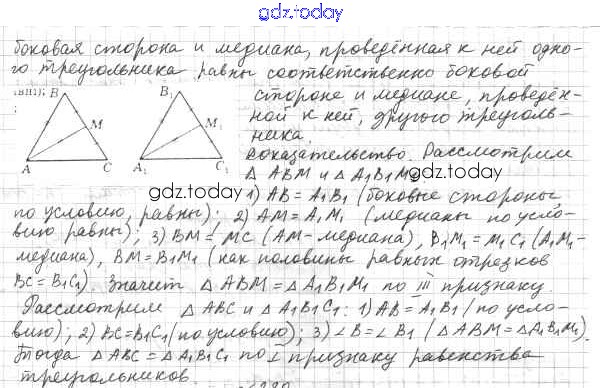 gdz.today
боковая сторона и медиана, проведённая к ней одно-
го треугольника равны соответственно боковой
B
B₁
стороне и медиане, проведён-
ной к ней, другого треуголь-
ника.
M
M₁
A
C
A₁
C₁
Доказательство. Рассмотрим
△ABM и △A₁B₁M₁
gdz.today
gdz.today
1) AB = A₁B₁ (боковые стороны,
по условию, равны); 2) AM = A₁M₁ (медианы по усло-
вию равны); 3) BM = MC (AM - медиана), B₁M₁ = M₁C₁ (A₁M₁ -
медиана), BM = B₁M₁ (как половины равных отрезков
BC = B₁C₁). Значит △ABM = △A₁B₁M₁ по III признаку.
Рассмотрим △ABC и △A₁B₁C₁: 1) AB = A₁B₁ (по усло-
вию); 2) BC = B₁C₁ (по условию); 3) ∠B = ∠B₁ (△ABM = △A₁B₁M₁).
Тогда △ABC = △A₁B₁C₁ по признаку равенства
треугольников.